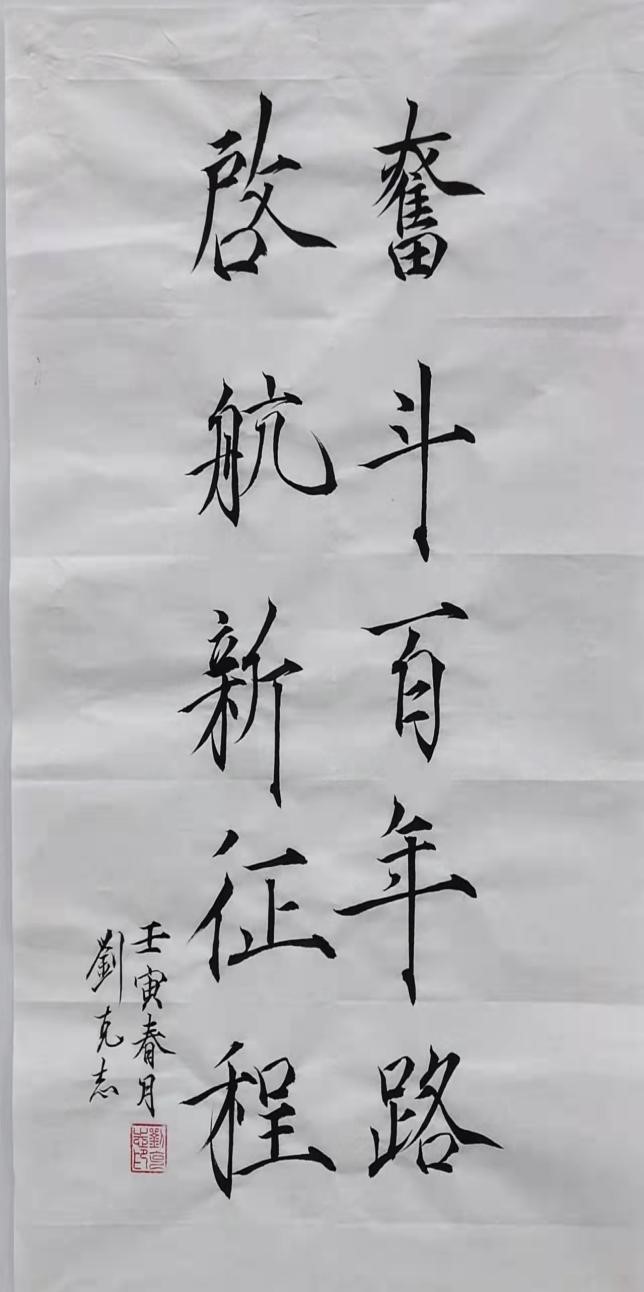 奮斗百年路
啓航新征程
壬寅春月
劉克志